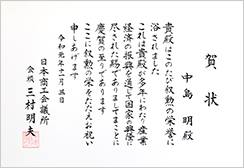 賀状
中島 明殿
貴殿はこのたび叙勲の栄誉に
浴されました
これは貴殿が多年にわたり産業
経済の振興を通じて国家の興隆に
尽された賜でありましてまことに
慶賀の至りであります
ここに叙勲の栄をたたえお祝い
申しあげます
令和元年十二月三日
日本商工会議所
会頭 三村明夫